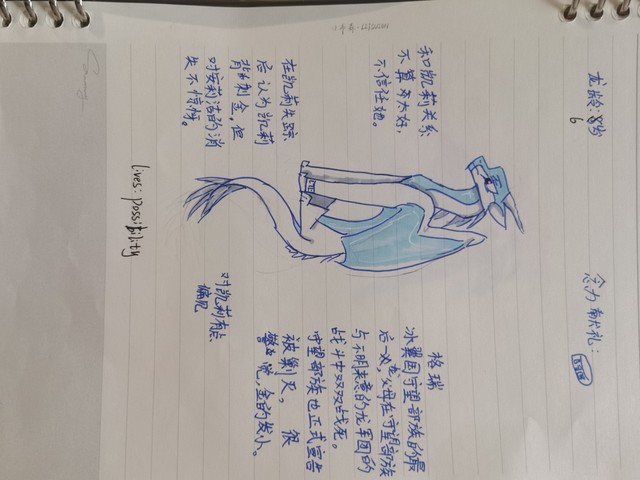 龙龄:
6
念力献礼:
和凯莉关系
不算多太好,
不信任她。
格瑞
冰翼国守望部族的最
后一龙,父母在守望部族
与不明来意的龙军团的
战斗中双双战死。
守望部族也正式宣告
被剿灭。 很
警觉,金的发小。
在凯莉失踪
后认为凯莉
背刺金,但
对安莉洁的消
失不惊讶。
对凯莉有点
偏见
lives: possibility